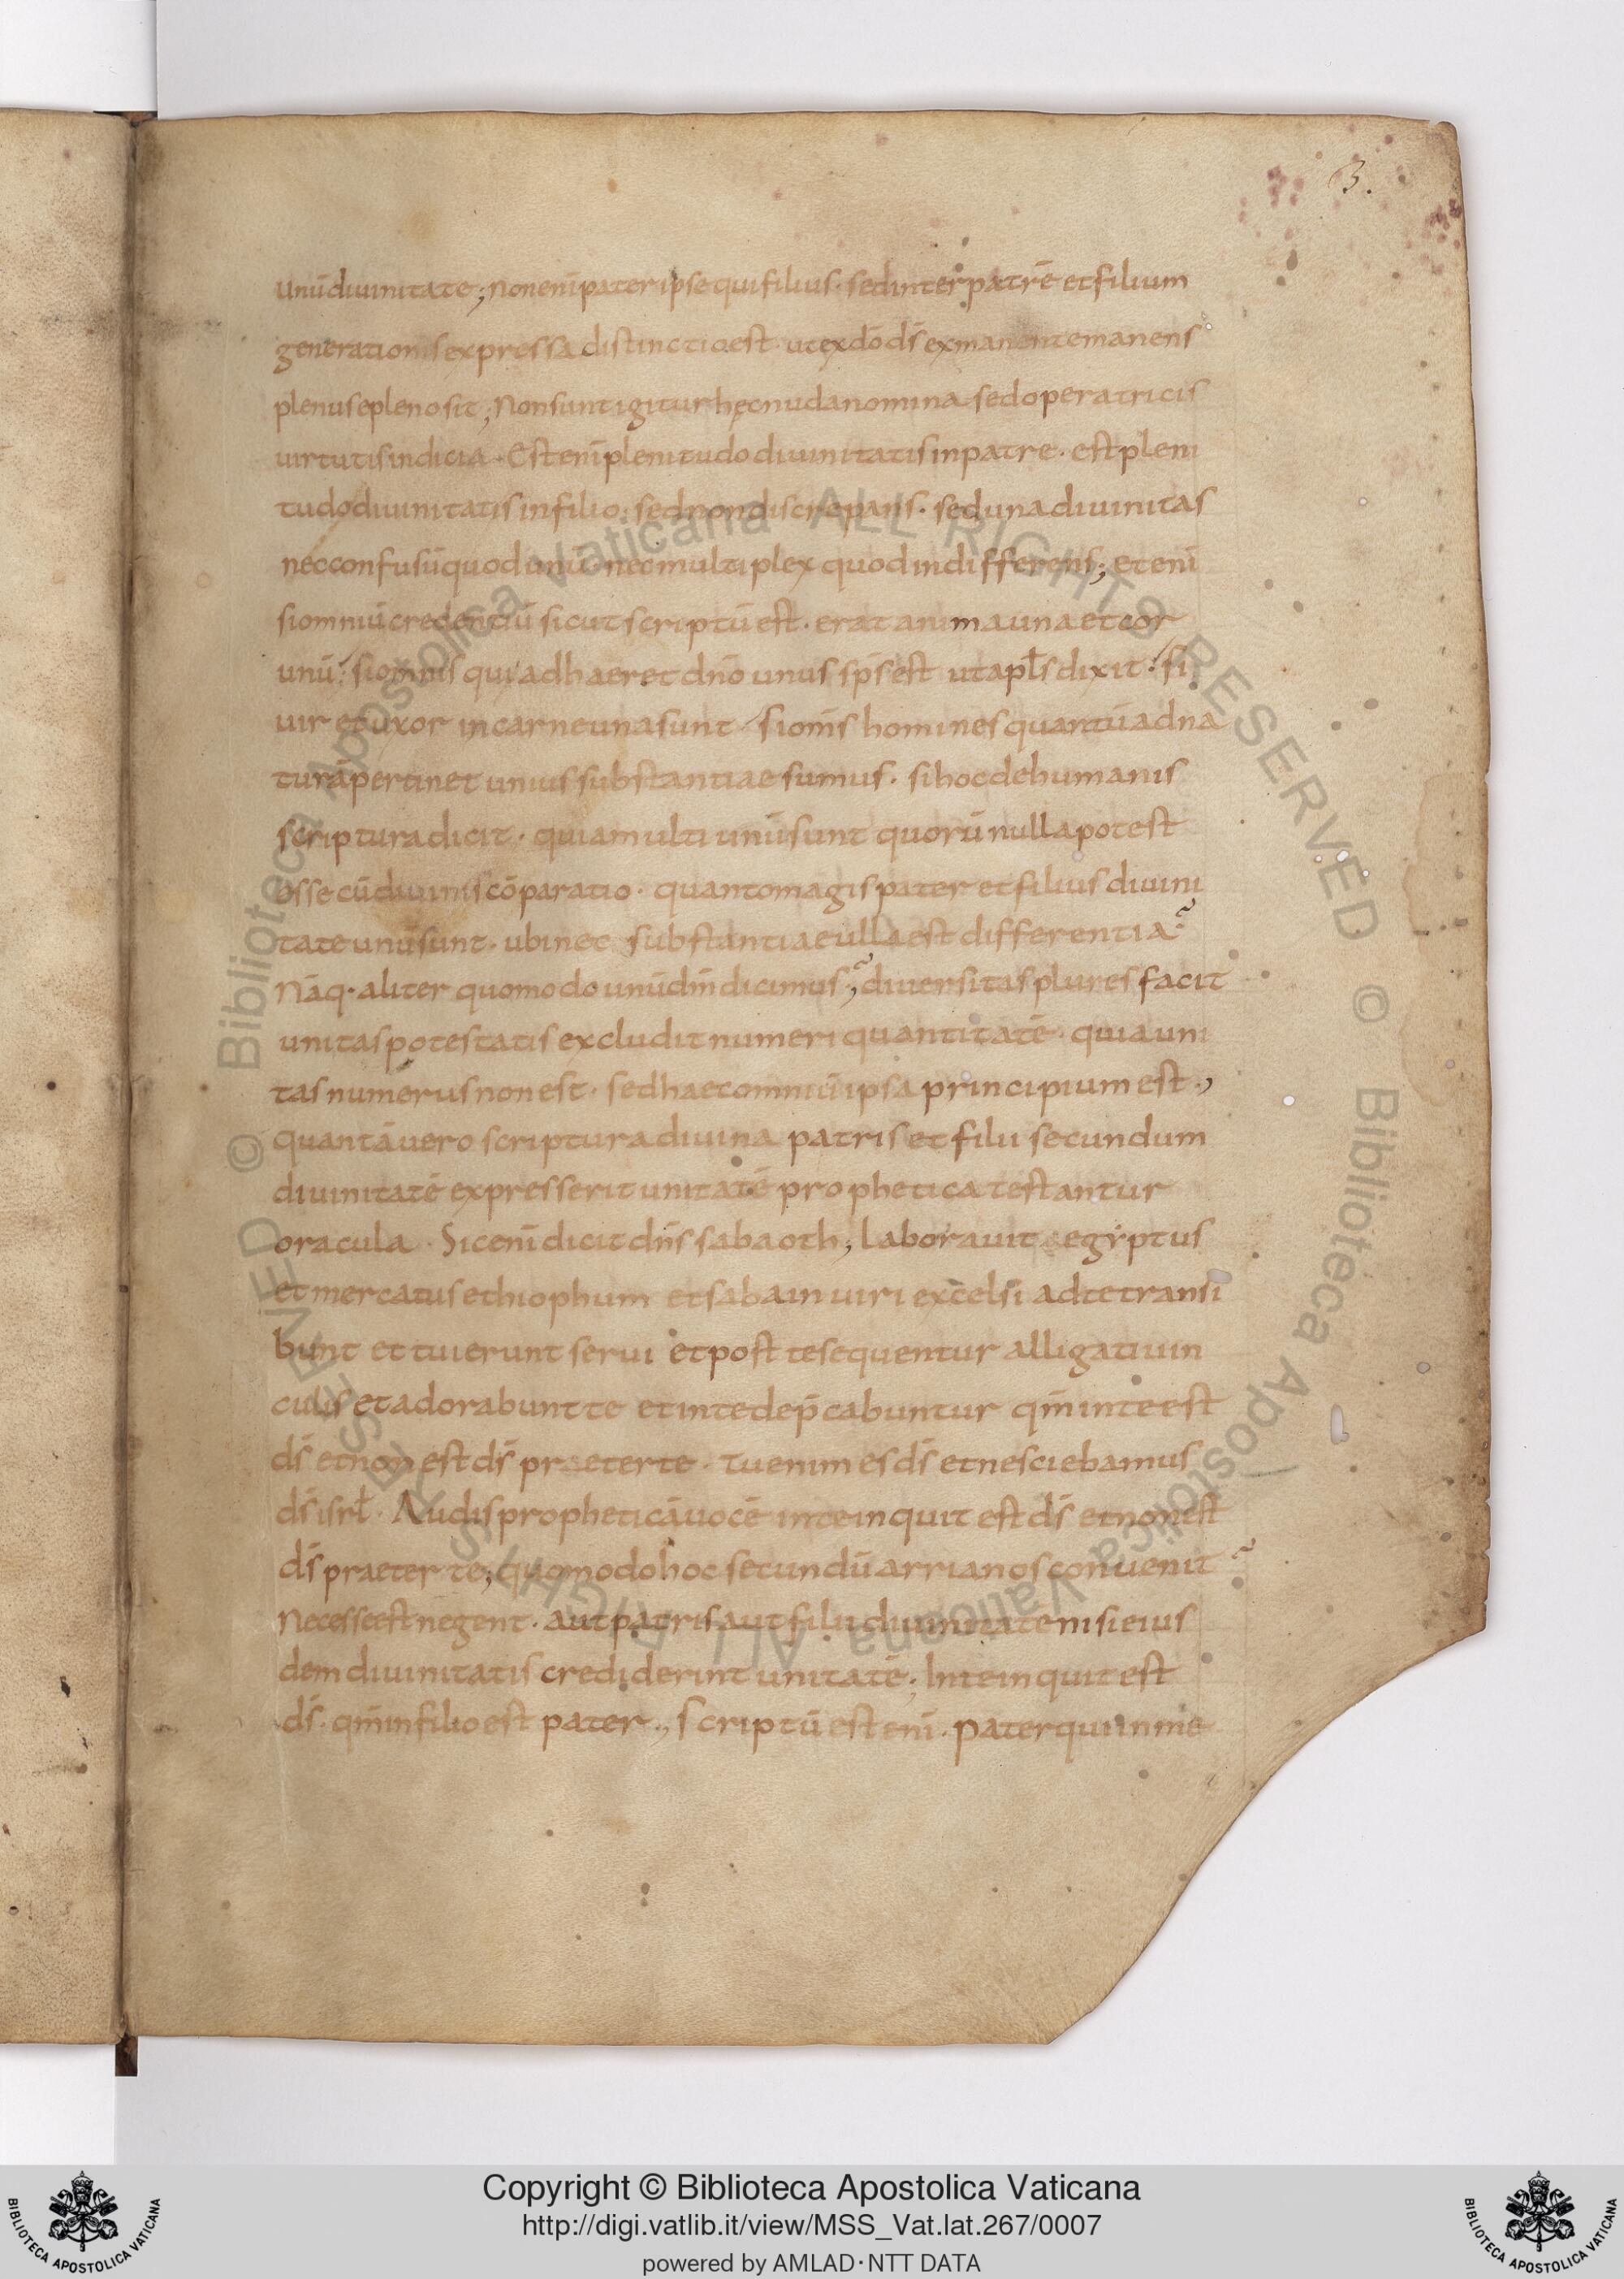 3.
unū diuinitate; non enī pater ipse qui filius· sed inter patrē et filium
generationis expressa distinctio est· ut ex dō dˉs ex manente manens
plenus e pleno sit; Non sunt igitur hęc nuda nomina sed operatricis
uirtutis indicia· Est enī plenitudo diuinitatis in patre· est pleni
tudo diuinitatis in filio· sed non discrepans· sed una diuinitas
nec confusū quod unū· nec multiplex quod indifferens; et enī
si omniū credentiū sicut scriptū est· erat anima una et cor
unū· si omnis qui adhaeret dn̄o unus sp̄s est ut apłs dixit· si
uir et uxor in carne una sunt si om̄s homines quantū ad na
turā pertinet unius substantiae sumus· si hoc de humanis
scriptura dicit· quia multi unū sunt quorū nulla potest
esse cū diuinis cōparatio· quanto magis pater et filius diuini
tate unū sunt· ubi nec substantiae ulla est differentia?
Nāq· aliter quomodo unū dm̄ dicimus? diuersitas plures facit
unitas potestatis excludit numeri quantitatē· quia uni
tas numerus non est· sed haec omniū ipsa principium est·,
quantā uero scriptura diuina patris et filii secundum
diuinitatē expresserit unitatē prophetica testantur
oracula· Sic enī dicit dn̄s sabaoth; laborauit egyptus
et mercatus ethiophum et sabain uiri excelsi ad te transi
bunt et tui erunt serui et post te sequentur alligati uin
culis et adorabunt te et in te dep̄cabuntur qm̄ in te est
dˉs et non est dˉs praeter te· tu enim es dˉs et nesciebamus
dˉs isrł· Audis propheticā uocē in te inquit est dˉs et non est
dˉs praeter te; quomodo hoc secundū arrianos conuenit?
Necesse est negent· aut patris aut filii diuinitatē nisi eius
dem diuinitatis crediderint unitatē; In te inquit est
dˉs· qm̄ in filio est pater·, scriptū est enī· pater qui in me
Copyright © Biblioteca Apostolica Vaticana
http://digi.vatlib.it/view/MSS_Vat.lat.267/0007
powered by AMLAD·NTT DATA
BIBLIOTECA APOSTOLICA VATICANA
BIBLIOTECA APOSTOLICA VATICANA
© Biblioteca Apostolica Vaticana ALL RIGHTS RESERVED © Biblioteca Apostolica Vaticana ALL RIGHTS RESERVED